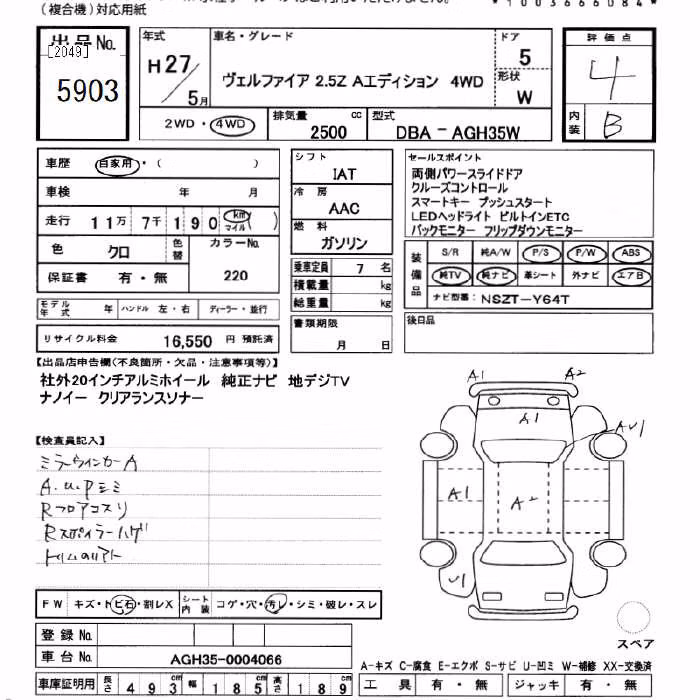 (複合機)対応用紙
出品No.
[2049]
5903
年式 車名・グレード ドア
H27/5月 ヴェルファイア 2.5Z Aエディション 4WD 5
形状 W
2WD・4WD 排気量 2500 cc 型式 DBA-AGH35W
評価点 4
内装 B
車歴 自家用・( )
車検 年 月
走行 11万 7千 190 km マイル( )
色 クロ 色替 カラーNo. 220
保証書 有・無
モデル年式 年 ハンドル 左・右 ディーラー・並行
リサイクル料金 16,550 円 預託済
シフト IAT
冷房 AAC
燃料 ガソリン
乗車定員 7 名
積載量 kg
総重量 kg
書類期限 月 日
セールスポイント
両側パワースライドドア
クルーズコントロール
スマートキー プッシュスタート
LEDヘッドライト ビルトインETC
バックモニター フリップダウンモニター
装備品 S/R 純A/W P/S P/W ABS
純TV 純ナビ 革シート 外ナビ エアB
ナビ型番: NSZT-Y64T
後日品
【出品店申告欄(不良箇所・欠品・注意事項等)】
社外20インチアルミホイール 純正ナビ 地デジTV
ナノイー クリアランスソナー
【検査員記入】
ミラーウインカーA
A.u.Pシミ
Rフロアコスリ
Rスポイラーハゲ
A1 A2
A1
AU1
A1 A2
U1
スペア
FW キズ・トビ石・割レX シート内装 コゲ・穴・汚レ・シミ・破レ・スレ
登録No.
車台No. AGH35-0004066
車庫証明用 長さ 493cm 幅 185cm 高さ 189cm
A-キズ C-腐食 E-エクボ S-サビ U-凹ミ W-補修 XX-交換済
工具 有・無 ジャッキ 有・無